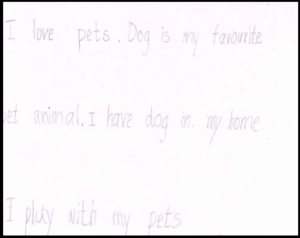 I love pets. Dog is my favourite
et animal. I have dog in. my home
I play with my pets